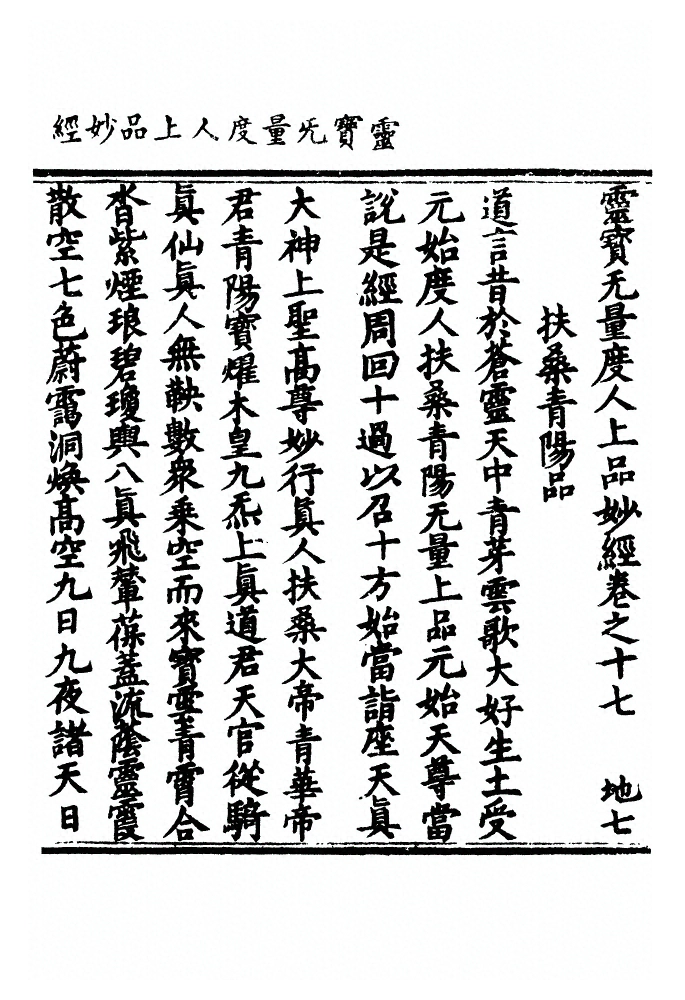 靈寳旡量度人上品妙經
靈寳无量度人上品妙經卷之十七　地七
扶桑青陽品
道言昔於蒼靈天中青芽雲歌大好生土受
元始度人扶桑青陽无量上品元始天尊當
說是經周回十過以召十方始當詣座天眞
大神上聖高尊妙行眞人扶桑大帝青華帝
君青陽寳燿木皇九炁上眞道君天官從騎
眞仙眞人無鞅數衆乘空而來寳雲青霄合
杳紫煙琅碧瓊輿八眞飛輦葆蓋流蔭靈霞
散空七色蔚靄洞煥高空九日九夜諸天日